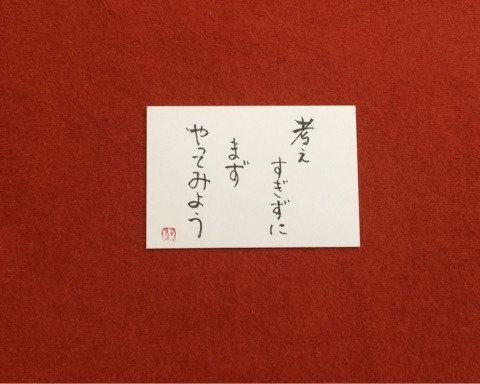 考え
すぎずに
まず
やってみよう